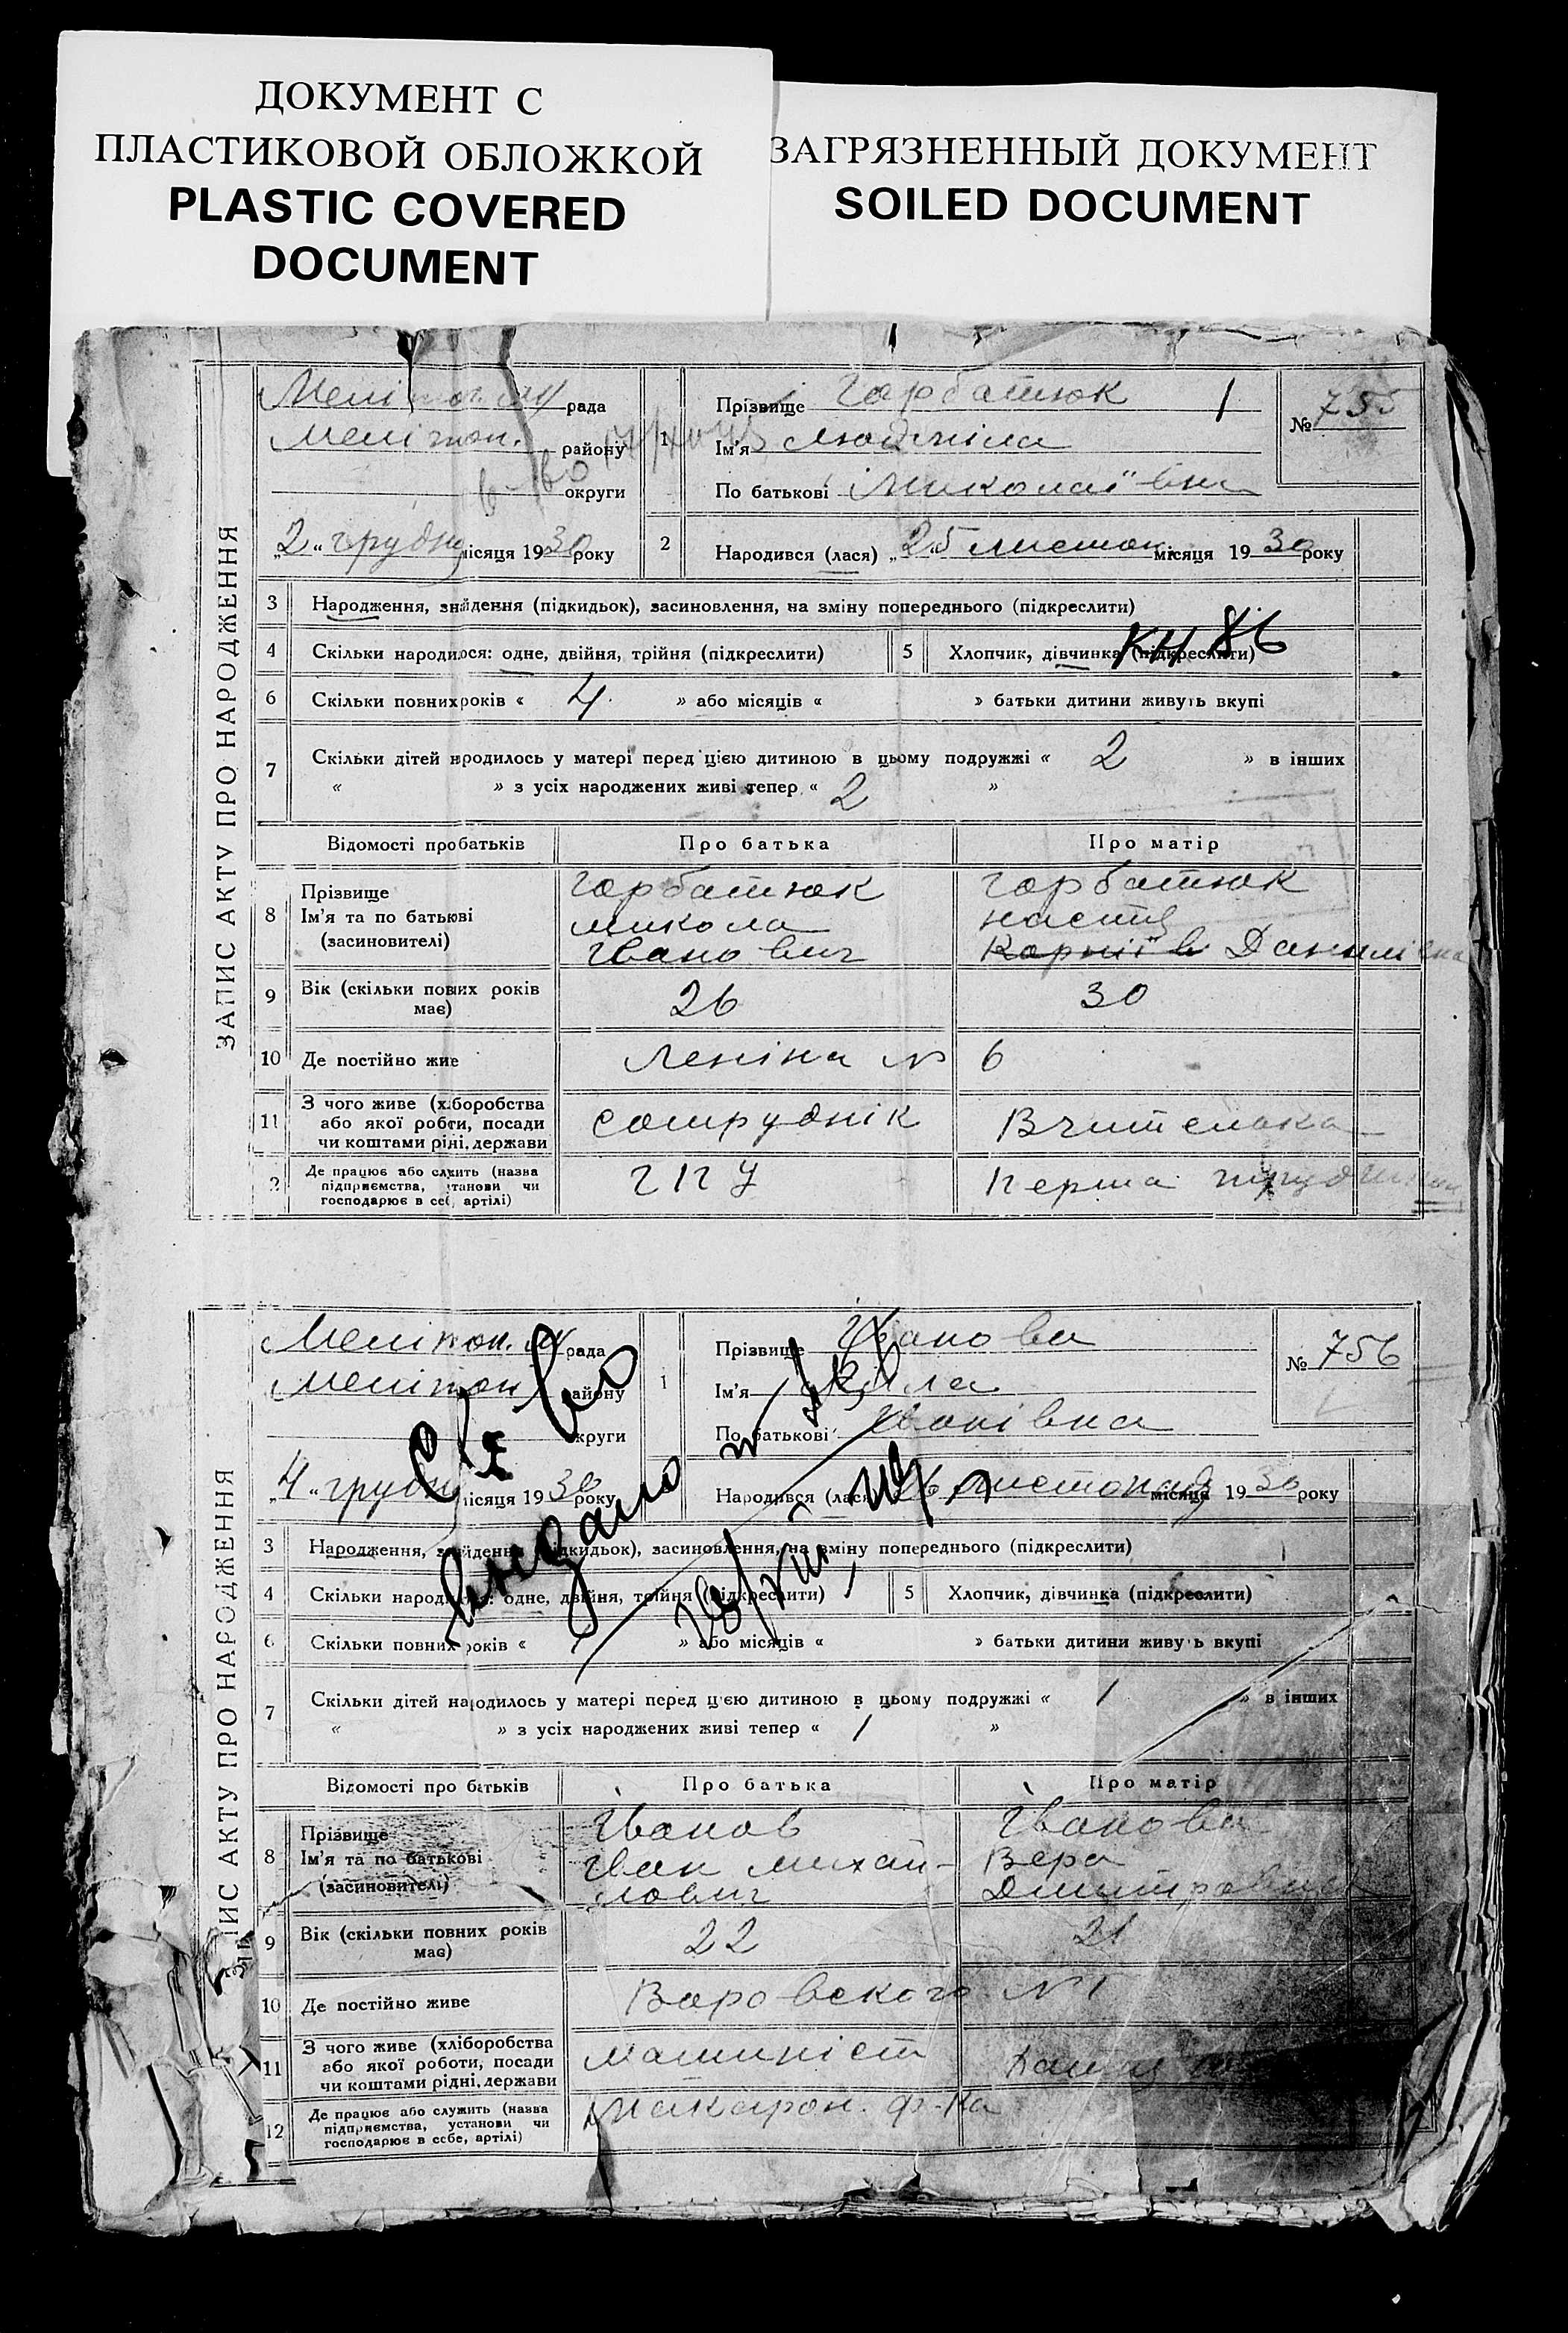 ДОКУМЕНТ С
ПЛАСТИКОВОЙ ОБЛОЖКОЙ
PLASTIC COVERED
DOCUMENT
ЗАГРЯЗНЕННЫЙ ДОКУМЕНТ
SOILED DOCUMENT
ЗАПИС АКТУ ПРО НАРОДЖЕННЯ
рада
Мелітоп. району
округи
„2“ грудня місяця 1930 року
1 Прізвище Горбатюк 1
Ім'я Людміла
По батькові Миколаї"вна
№ 755
2 Народився (лася) „25 листоп. місяця 1930 року
3 Народження, знайдення (підкидьок), засиновлення, на зміну попереднього (підкреслити)
4 Скільки народилося: одне, двійня, трійня (підкреслити)
5 Хлопчик, дівчинка (підкреслити)
КН 86
6 Скільки повних років « 4 » або місяців « » батьки дитини живуть вкупі
7 Скільки дітей народилось у матері перед цією дитиною в цьому подружжі « 2 » в інших
« » з усіх народжених живі тепер « 2 »
Відомості про батьків Про батька Про матір
8 Прізвище Горбатюк Горбатюк
Ім'я та по батькові Микола Настя
(засиновителі) Іванович Данилівна
9 Вік (скільки повних років має) 26 30
10 Де постійно живе Леніна № 6
11 З чого живе (хліборобства
або якої роботи, посади
чи коштами рідні, держави сотруднік Вчителька
Де працює або служить (назва
підприємства, установи чи
господарює в себе, артілі) ГПУ Перша
ЗАПИС АКТУ ПРО НАРОДЖЕННЯ
Мелітоп. м рада
Мелітоп району
округи
„4“ грудня місяця 1930 року
1 Прізвище Іванова
Ім'я
По батькові Іванівна
№ 756
Народився (лася) 26 листопад місяця 1930 року
С-во
3 Народження, знайдення (підкидьок), засиновлення, на зміну попереднього (підкреслити)
4 Скільки народилося: одне, двійня, трійня (підкреслити)
5 Хлопчик, дівчинка (підкреслити)
6 Скільки повних років « » або місяців « » батьки дитини живуть вкупі
7 Скільки дітей народилось у матері перед цією дитиною в цьому подружжі « 1 » в інших
« » з усіх народжених живі тепер « 1 »
Відомості про батьків Про батька Про матір
8 Прізвище Іванов Іванова
Ім'я та по батькові Іван Михай- Вера
(засиновителі) лович
9 Вік (скільки повних років має) 22 21
10 Де постійно живе Воровского № 1
11 З чого живе (хліборобства
або якої роботи, посади
чи коштами рідні, держави машиніст
12 Де працює або служить (назва
підприємства, установи чи
господарює в себе, артілі) Макарон. ф-ка